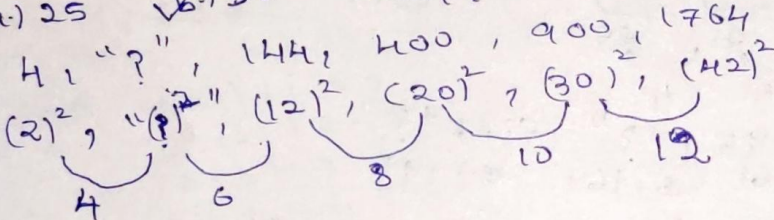 .) 25
4, "?", 144, 400, 900, 1764
(2)², "(?)²", (12)², (20)², (30)², (42)²
4 6 8 10 12